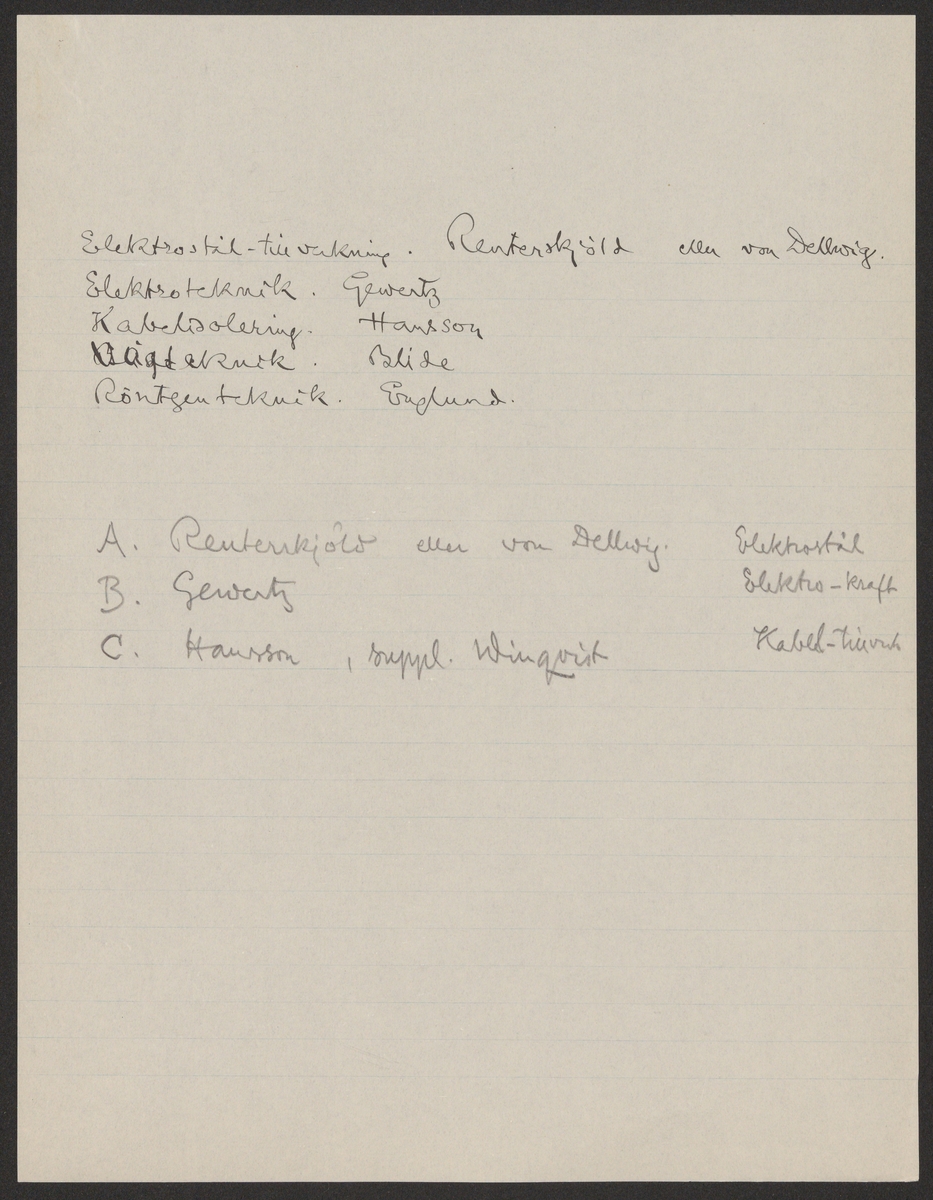 Elektrostål-tillverkning. Reuterskjöld eller von Dellwig.
Elektroteknik. Gewertz
Kabelisolering. Hansson
Lågteknik. Blide
Röntgenteknik. Englund.
A. Reuterskjöld eller von Dellwig. Elektrostål
B. Gewertz Elektro-kraft
C. Hansson, suppl. Winqvist Kabel-tillverk